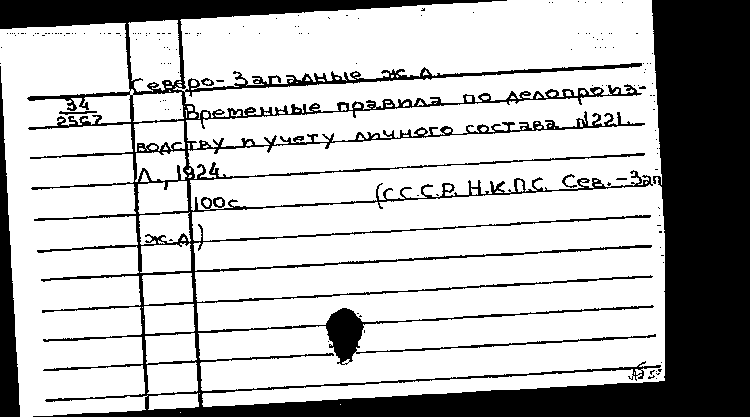 Северо-Западные ж.д.
34
2567
Временные правила по делопроиз-
водству и учету личного состава №221.
Л., 1924.
100с. (С.С.С.Р. Н.К.П.С. Сев.-Зап
ж.д)